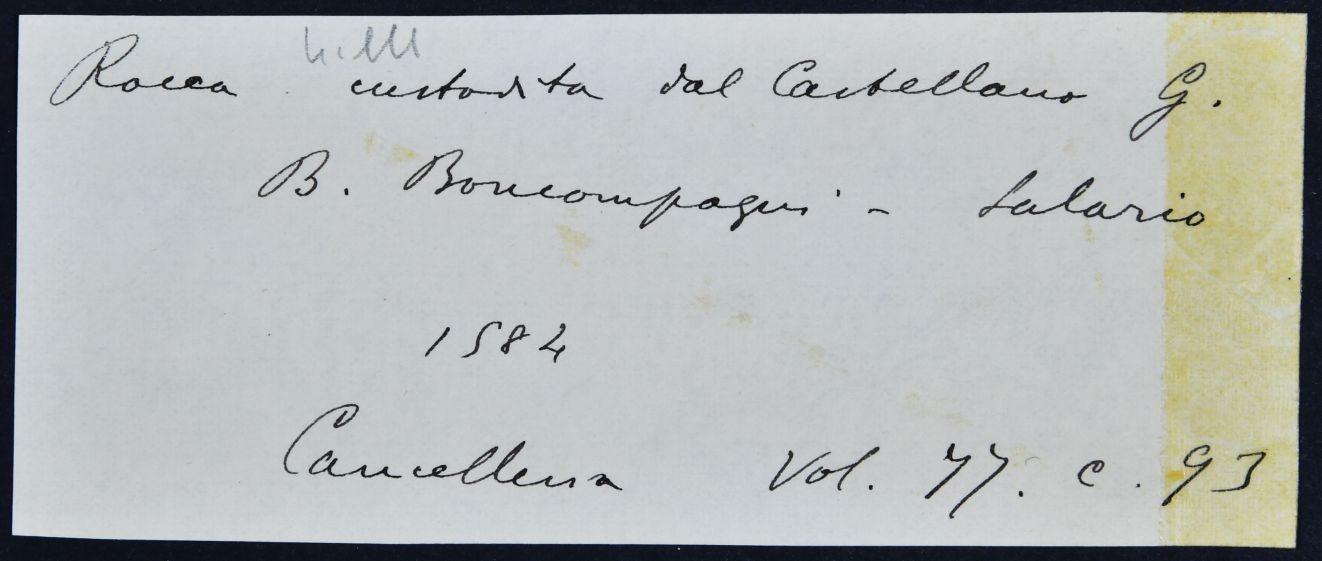 Rocca custodita dal Castellano G.
B. Boncompagni - Salario
1584
Cancelleria Vol. 77. c. 93